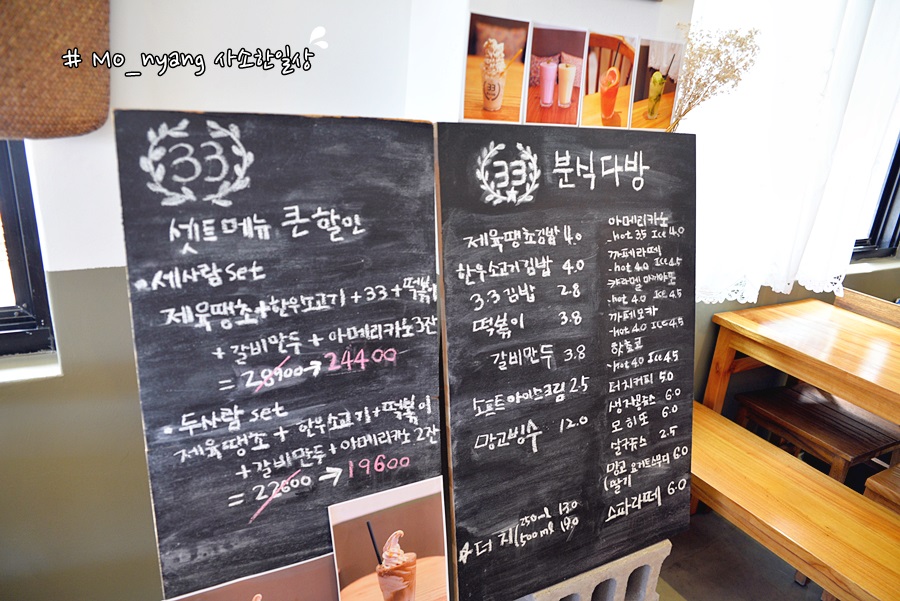 # Mo_nyang 사소한일상
33
셋트메뉴 큰할인
세사람set
제육땡초+한우소고기+33+떡볶이
+갈비만두+아메리카노3잔
=28900→24400
두사람set
제육땡초+한우소고기+떡볶이
+갈비만두+아메리카노2잔
=22600→19600
33 분식다방
제육땡초김밥 4.0
한우소고기김밥 4.0
33김밥 2.8
떡볶이 3.8
갈비만두 3.8
소프트아이스크림 2.5
망고빙수 12.0
더치(250ml 13.0
500ml 19.0
아메리카노
hot 3.5 Ice 4.0
까페라떼
hot 4.0 Ice 4.5
캬라멜마끼아또
hot 4.0 Ice 4.5
까페모카
hot 4.0 ICE 4.5
핫쵸코
hot 4.0 Ice 4.5
더치커피 5.0
생자몽쥬스 6.0
모히또 6.0
쥬스 2.5
망고 요거트스무디 6.0
(딸기
라떼 6.0
33